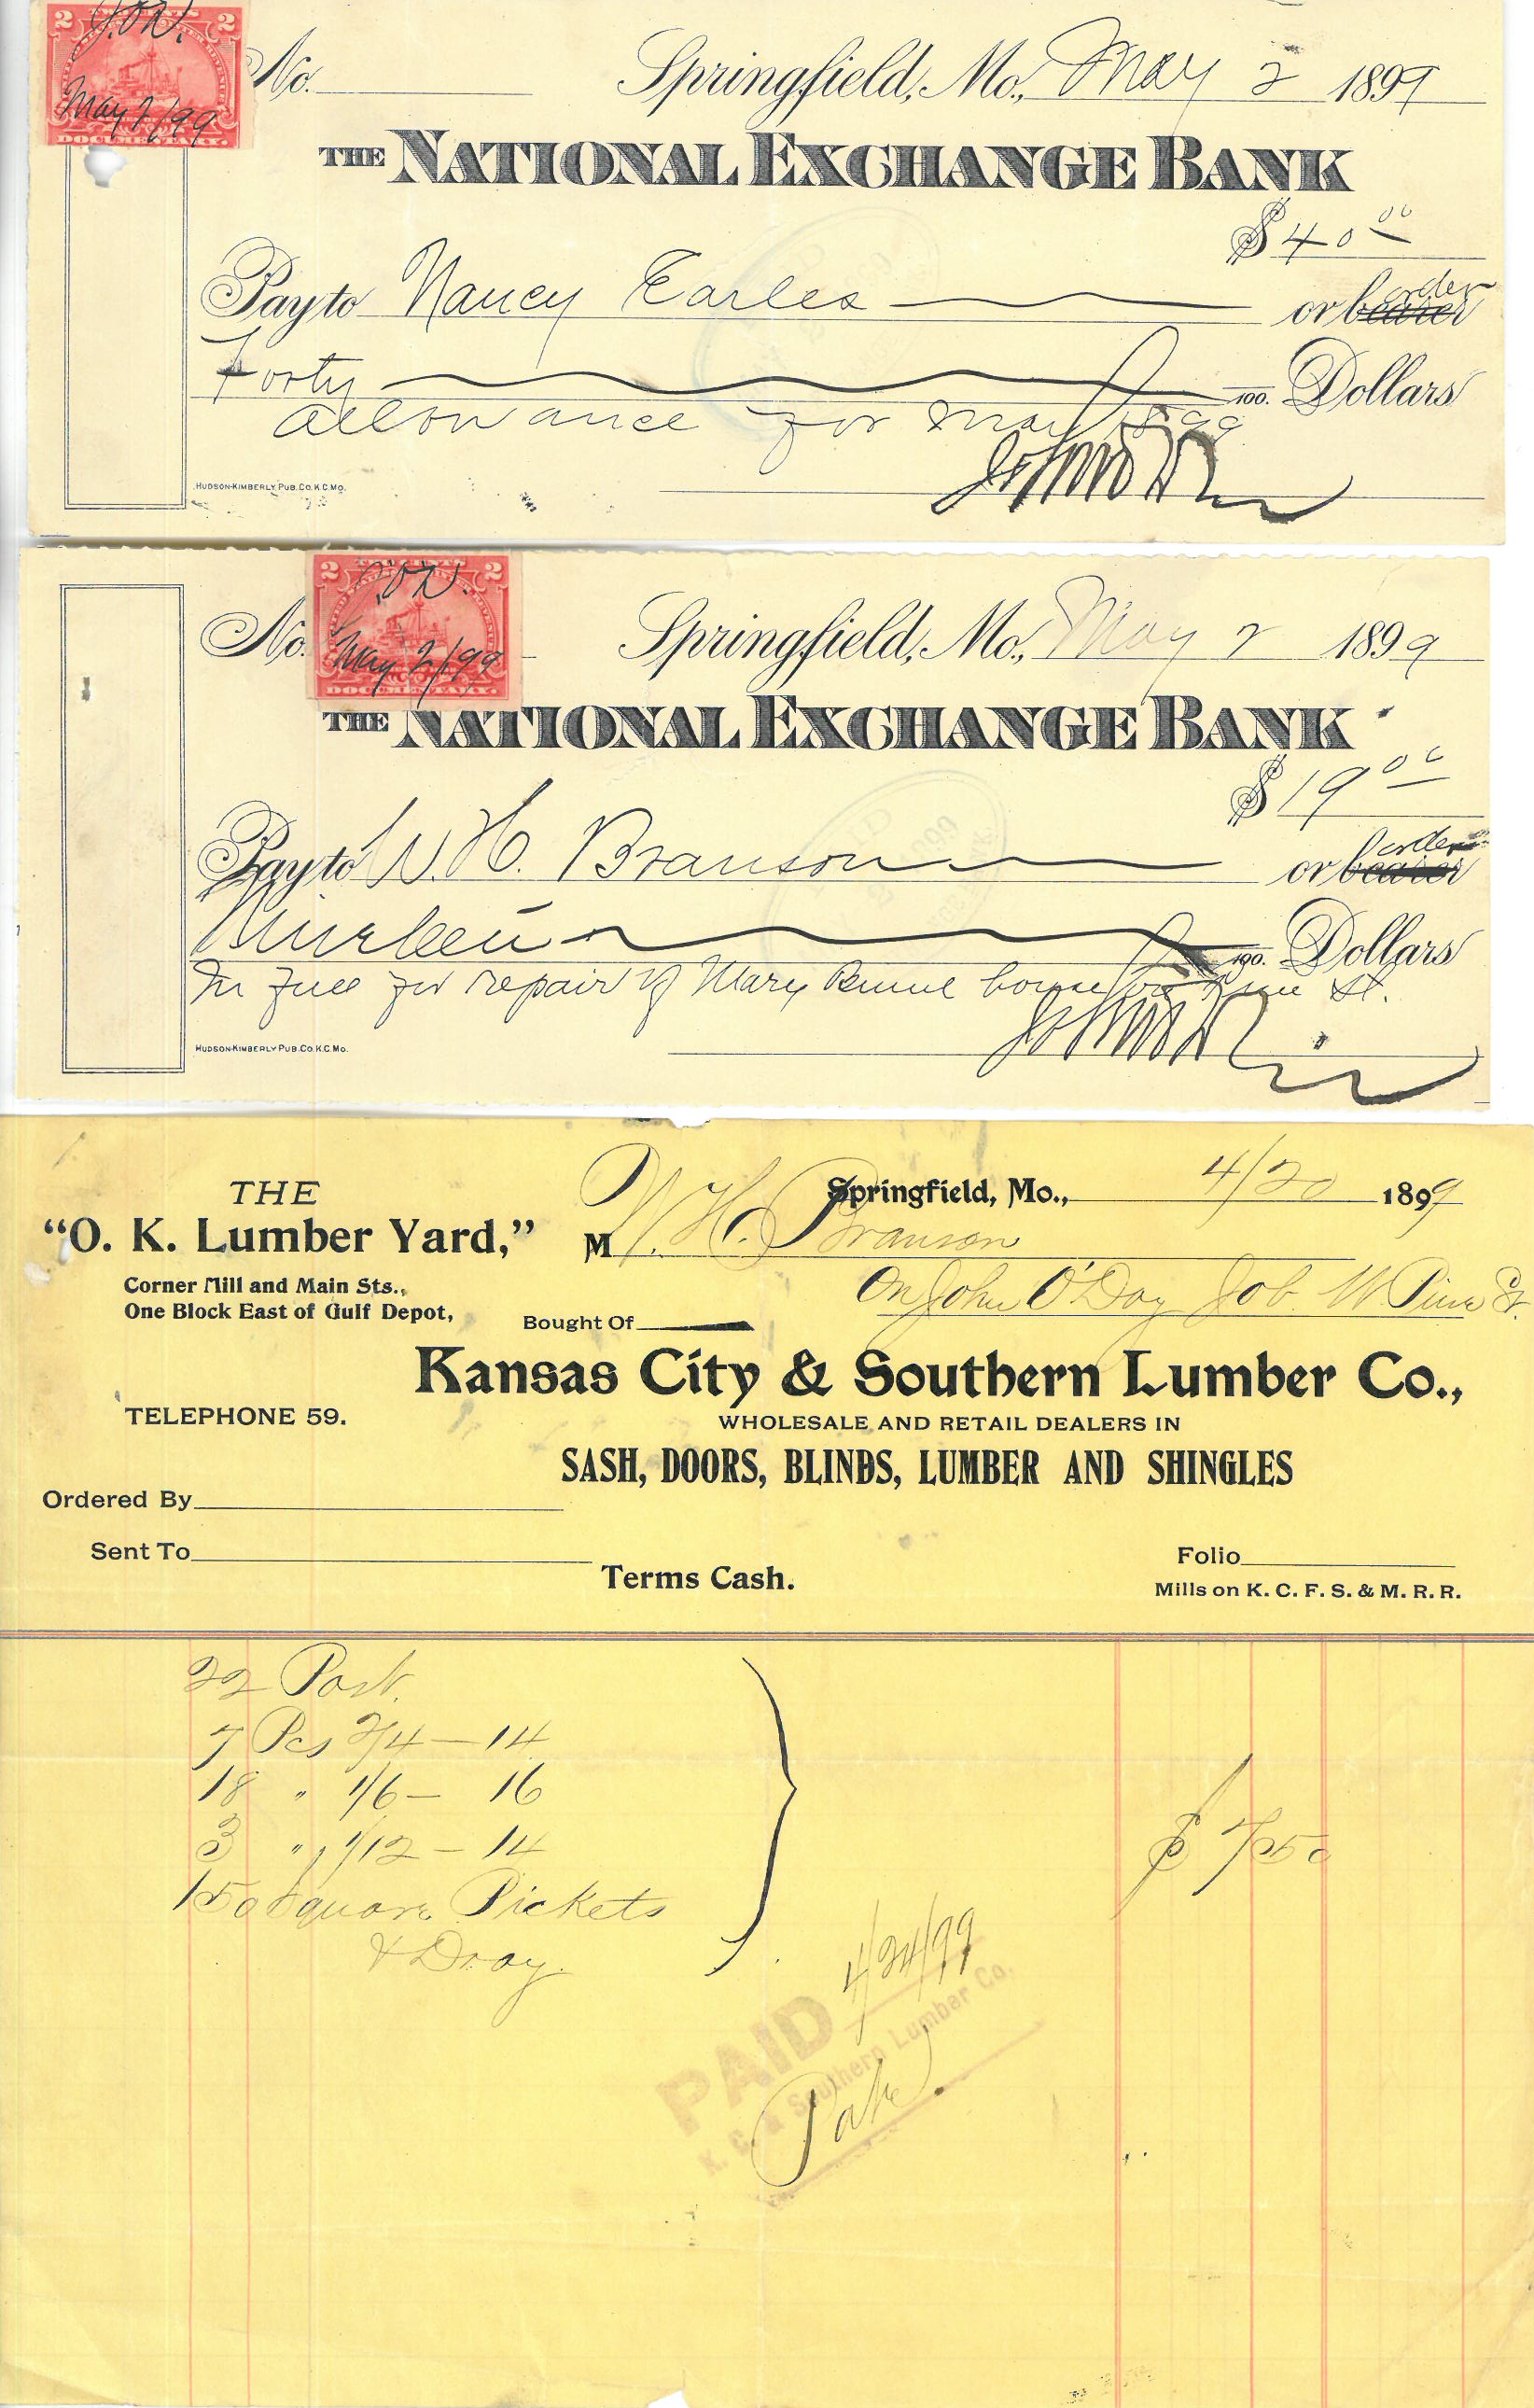 2 2
J.O'D.
May 2/99
DOCUMENTARY.
No. Springfield, Mo., May 2 1899
THE NATIONAL EXCHANGE BANK
$ 40 00
Pay to Nancy Earles or bearer order
Forty 100. Dollars
allowance for May 1899
HUDSON-KIMBERLY PUB. CO. K.C. MO.
2 2
J.O'D.
May 2/99
DOCUMENTARY.
No. Springfield, Mo., May 2 1899
THE NATIONAL EXCHANGE BANK
$ 19 00
Pay to W. H. Branson or bearer order
Nineteen 100. Dollars
In full for repair of Mary house on Pine St.
HUDSON-KIMBERLY PUB. CO. K.C. MO.
THE
"O. K. Lumber Yard,"
Corner Mill and Main Sts.,
One Block East of Gulf Depot,
TELEPHONE 59.
Springfield, Mo., 4/20 1899
M W. H. Branson
On John O'Day Job W Pine St.
Bought Of
Kansas City & Southern Lumber Co.,
WHOLESALE AND RETAIL DEALERS IN
SASH, DOORS, BLINDS, LUMBER AND SHINGLES
Ordered By
Sent To
Terms Cash.
Folio
Mills on K. C. F. S. & M. R. R.
22 Post.
7 Pcs 2/4 — 14
18 " 1/6 — 16
3 " 1/12 — 14
150 Square Pickets
& Dray.
$ 7 50
4/20/99
PAID
K. C. & Southern Lumber Co.